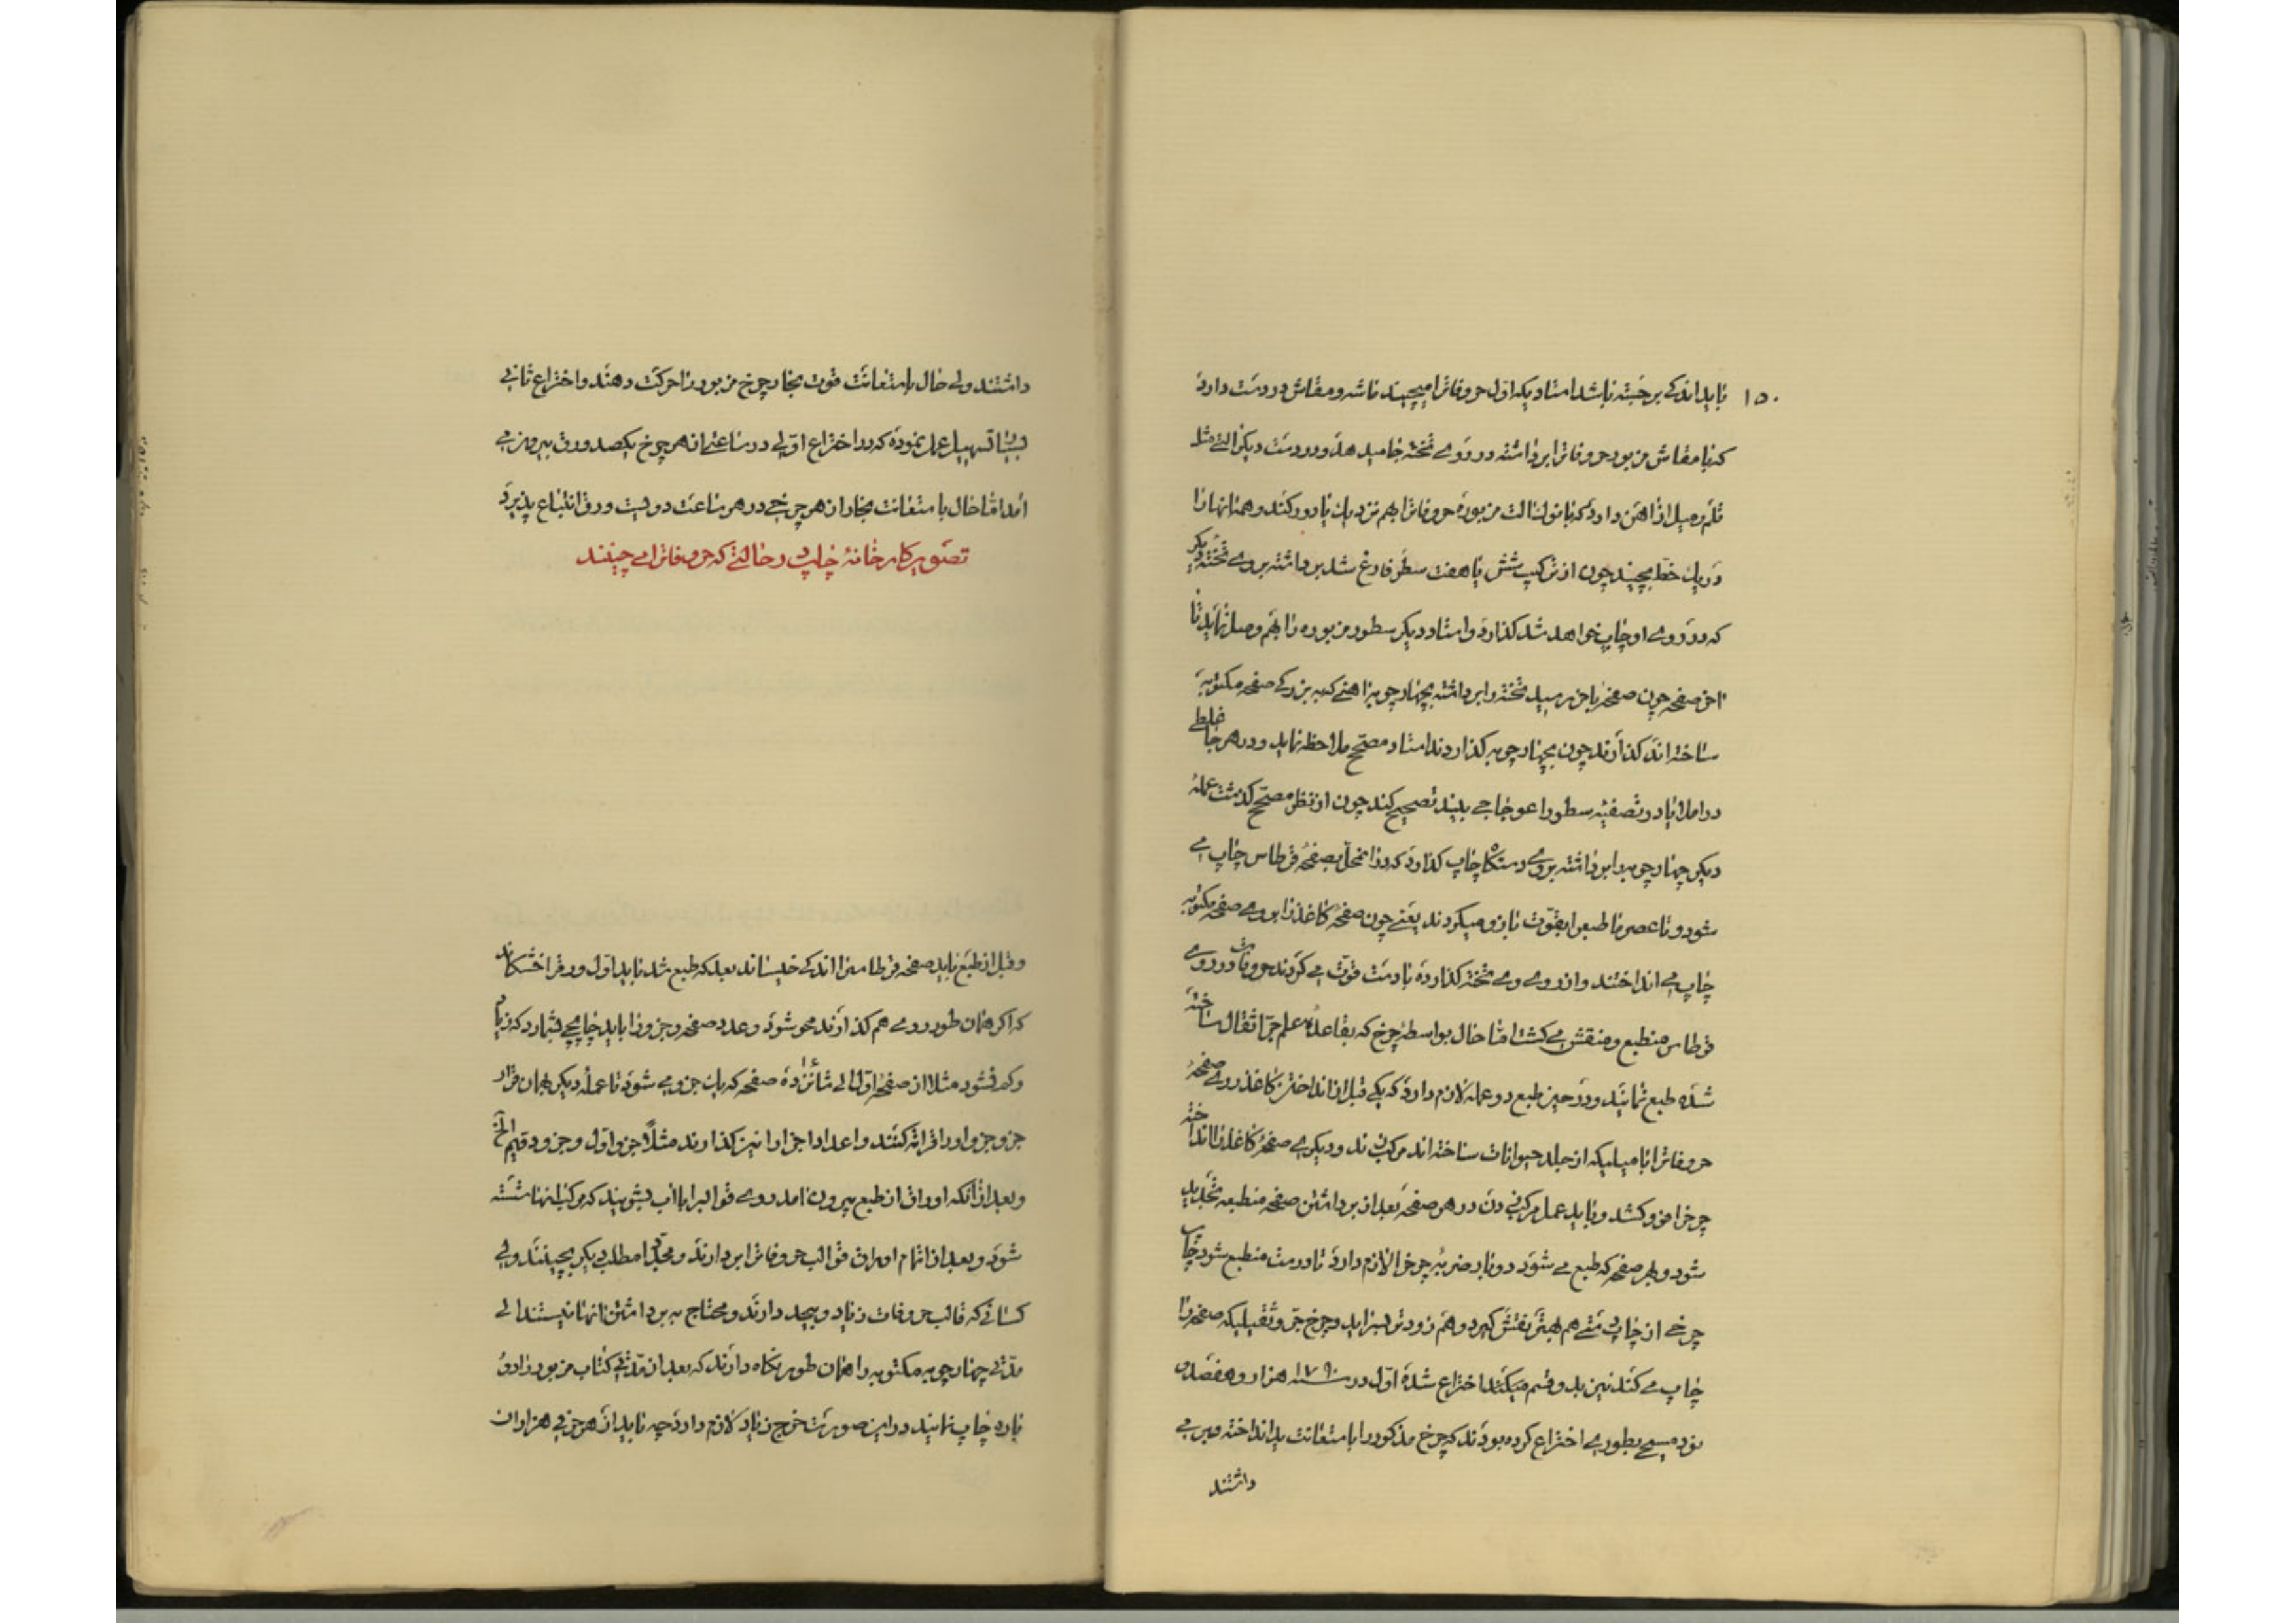 ۱۵۰
باید اندکی برجسته باشد استادیکه اول حروفاترا میچیند شانه و مقاش در دست دارد
که با مقاش مزبور حروفاترا برداشته در روی تخته جا میدهد و در دست دیگر التی مثل
قلم و میل از اهن دارد که با نوک الت مزبوره حروفاترا بهم نزدیک یا دور کند و همه انها را
در یک خط بچیند چون از ترکیب شش یا هفت سطر فارغ شد برداشته بروی تخته دیگر
که در روی او چاپ خواهد شد گذارد و استاد دیگر سطور مزبوره را بهم وصل نماید تا
اخر صفحه چون صفحه باخر رسید تخته را برداشته بچهارچوبه اهنی که ببزرگی صفحه مکتوبه
ساخته اند گذارند چون بچهارچوبه گذاردند استاد مصحح ملاحظه نماید و در هر جا غلطی
در املا یا در تصفیه سطور اعوجاجی بیند تصحیح کند چون از نظر مصحح گذشت عمله
دیگر چهارچوبه را برداشته بروی دستگاه چاپ گذارد که در انمحل بصفحه قرطاس چاپ می
شود و تا عصر ما طبع را بقوت بازو میکردند یعنی چون صفحه کاغذ را بروی صفحه مکتوبه
چاپ می انداختند و از روی وی تخته گذارده با دست قوت می کردند حروفات در روی
قرطاس منطبع و منقش می گشت اما حال بواسطه چرخ که بقاعده علم جر اثقال ساخته
شده طبع نمایند و در حین طبع دو عمله لازم دارد که یکی قبل از انداختن کاغذ روی صفحه
حروفاترا با میلیکه از جلد حیوانات ساخته اند مرکب زند و دیگری صفحه کاغذ را انداخته
چرخ را فرو کشد و باید عمل مرکب زدن در هر صفحه بعد از برداشتن صفحه منطبعه تجدید
شود و بهر صفحه که طبع می شود دو بار ضربه چرخ لازم دارد تا درست منطبع شود چاپ
چرخی از چاپ دستی هم بهتر نقش گیرد و هم زودتر بسر اید و چرخ جر ثقیلیکه صفحه را
چاپ می کند نیز بدو قسم میکنند اختراع شده اول در سنه ۱۷۹۰ هزار و هفتصد و
نود مسیحی بطوری اختراع کرده بودند که چرخ مذکور را با استعانت ید انداخته و بر می
داشتند
داشتند ولی حال باستعانت قوت بخار چرخ مزبور را حرکت دهند و اختراع ثانی
بسیار تسهیل عمل نموده که در اختراع اولی در ساعتی از هر چرخ یکصد ورق بیرون می
امد اما حال باستعانت بخار از هر چرخی در هر ساعت دویست ورق انتباع پذیرد
تصویر کارخانه چاپ در حالتی که حروفاترا می چینند
و قبل از طبع باید صفحه قرطاس را اندکی خیساند بعد که طبع شد باید اول ورقرا خشکاند
که اگر همان طور روی هم گذارند محو شود و عدد صفحه و جزو را باید چاپچی بشمارد که زیاد
و کم نشود مثلا از صفحه اول الی شانزده صفحه که یک جزو می شود تا عمله دیگر بهمان قرار
جزو جزو اوراقرا ته کنند و اعداد اجزا را نیز گذارند مثلا جزو اول و جزو دویم الخ
و بعد از آنکه اوراق از طبع بیرون امد روی قوالبرا با آب بشویند که مرکب انها شسته
شود و بعد از اتمام اوراق قوالب حروفاترا بردارند و مجدد امطلب دیگر بچینند ولی
کسانی که قالب حروفات زیاد و بیحد دارند و محتاج به برداشتن انها نیستند الی
مدتی چهارچوبه مکتوبه را همان طور نگاه دارند که بعد از مدتی کتاب مزبور را دو
باره چاپ نمایند در این صورت خرج زیاد لازم دارد چه باید از هر حرفی هزاران